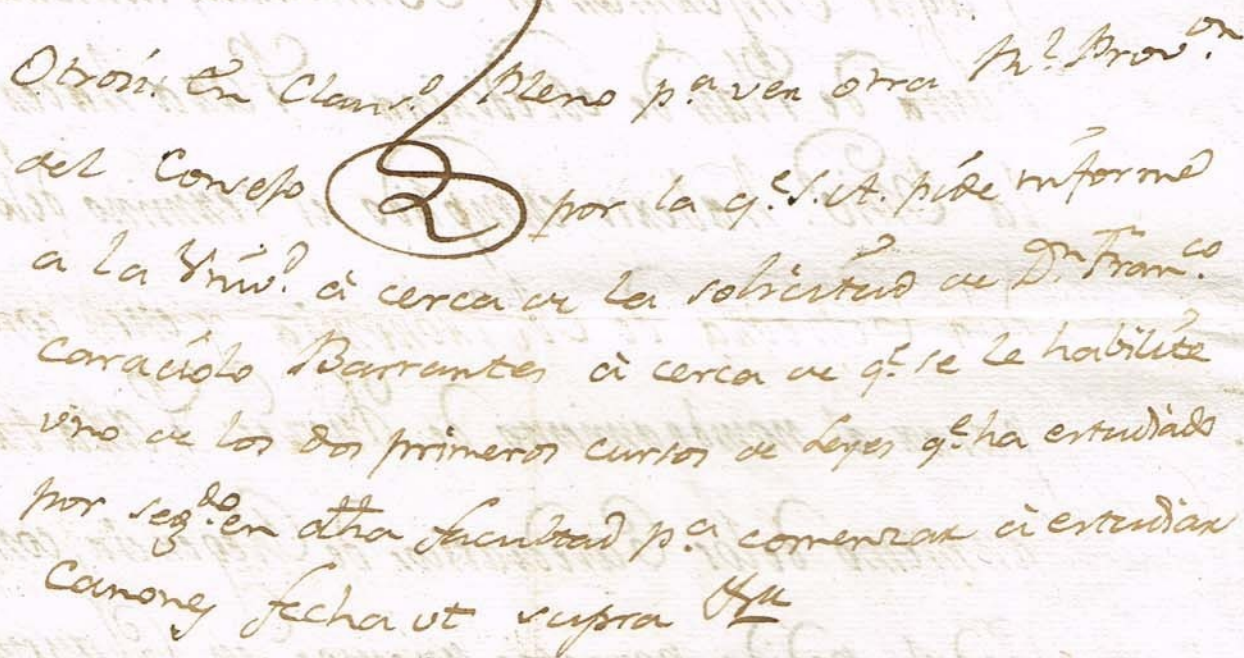 Otrosi: En Claus.º Pleno p.ª ver otra R.l Prov.on
del Consejo 2 por la q.e S. A. pide informe
a la Univ.d à cerca de la solicitud de D.n Fran.co
Caraciolo Barrantes à cerca de q.e se le habilite
vno de los dos primeros cursos de Leyes q.e ha estudiado
por seg.do en dha facultad p.ª comenzar à estudiar
Canones fecha ut supra